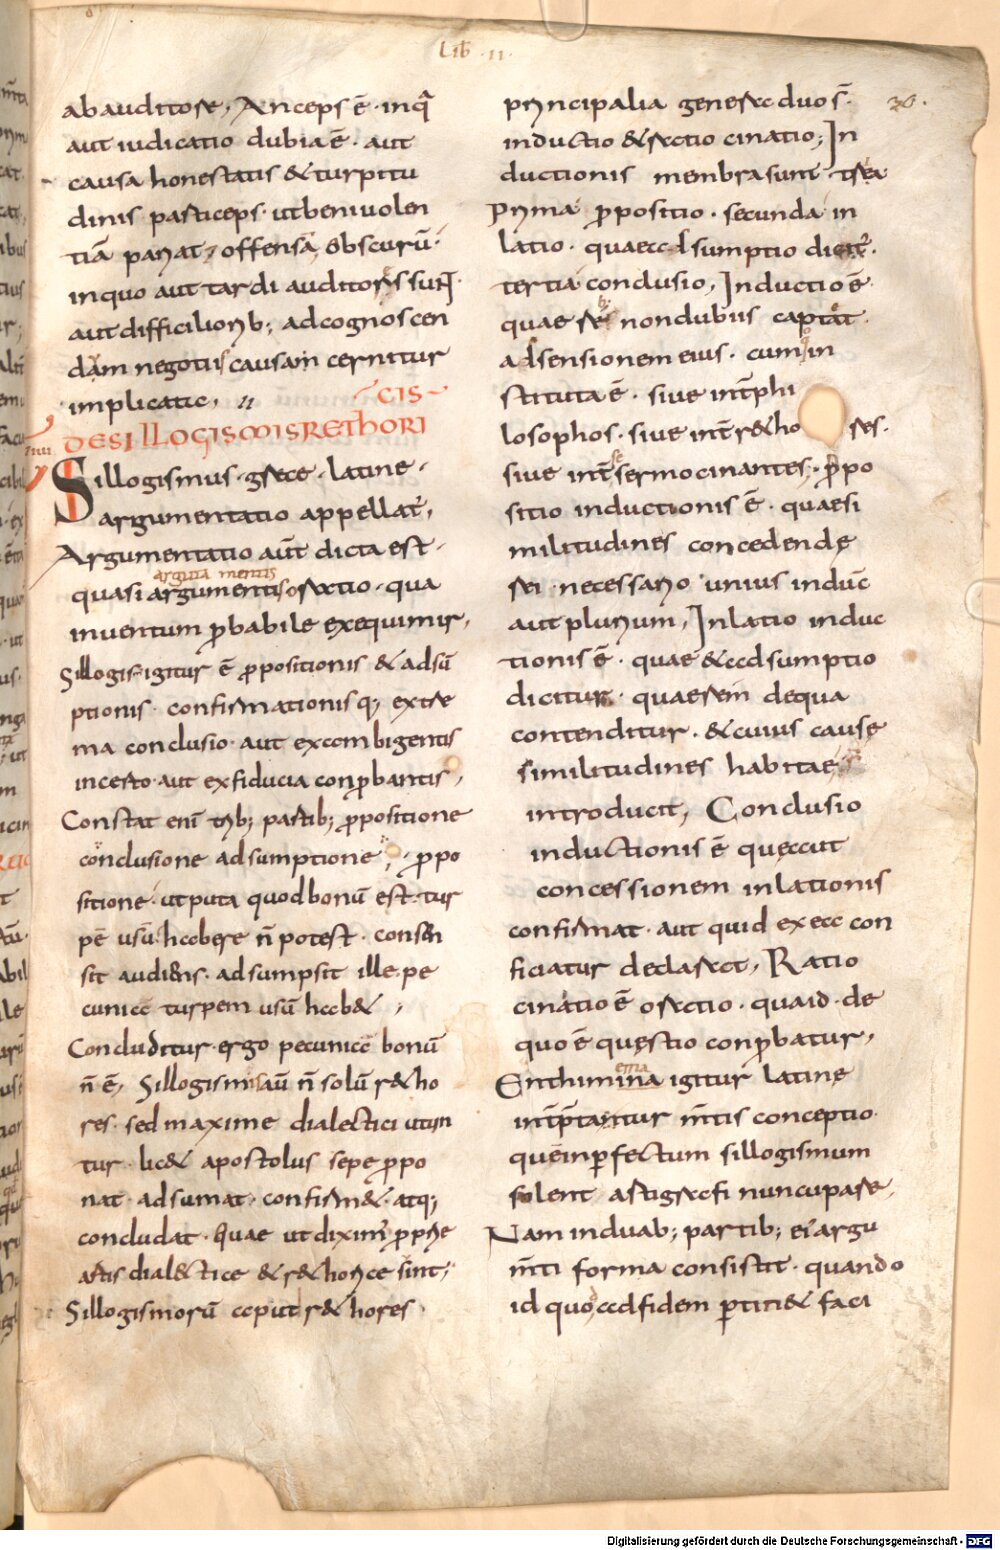 Lib · II ·
ab auditore, Anceps ē · in q̄
aut iudicatio dubia ē · aut
causa honestatis & turpitu
dinis particeps · ut beniuolen
tiā pariat, offensā, Obscurū ·
in quo aut tardi auditores sunt
aut difficiliorib; ad cognoscen
dam negotiis causam cernitur
implicatic,
CIS
IIII
DE SILLOGISMIS RETHORI
Sillogismus · grece · latine ·
argumentatio appellat̄,
Argumentatio aūt dicta est ·
arguta mentis
quasi argumentis oratio · qua
inuentum p̄babile exequimir,
Sillogis · igitur ē p̄positionis & adsū
ptionis · confirmationisq; extre
ma conclusio · aut ex ambigentis
incerto · aut ex fiducia conp̄bantis,
Constat enī trib; partib; p̄positione
conclusione adsumptione, · p̄po
sitione · utputa quod bonū est · tur
pē usū habere n̄ potest · consen
sit audiens · adsumpsit ille · pe
cuniae turpem usū hab&,
Concluditur · ergo pecuniae bonū
n̄ ē, Sillogismis aū n̄ solū r&ho
res · sed maxime dialectici utun
tur · lic& apostolus sepe p̄po
nat · adsumat · confirm& · atq;
concludat · Quae ut dixim̄ p̄priae
artis dialectice & r&horice sint,
Sillogismorū aput r&hores ·
principalia genera duo s̄ · 36.
inductio & ratio cinatio, In
ductionis membra sunt tria
Prima p̄positio · secunda in
latio · quae adsumptio dicit̄ ·
tertia conclusio, Inductio ē ·
quae rebus non dubiis captat
adsensionem eius · cum in
stituta ē · siue int̄ phi
losophos · siue int̄ r&ho res ·
siue int̄ sermocinantes, · p̄po
sitio inductionis ē · quae si
militudines concedende
rei necessario unius induc̄
aut plurium, Inlatio induc
tionis ē · quae & adsumptio
dicitur · quae rem de qua
contenditur · & cuius cause
similitudines habitae
introducit, Conclusio
inductionis ē que aut
concessionem inlationis
confirmat · aut quid ex ea con
ficiatur declarat, Ratio
cinatio ē oratio · qua id · de
quo ē questio conp̄batur,
ema
Enthimina igitur latine
int̄p̄tantur m̄tis conceptio
quē inperfectum sillogismum
solent artigrafi nuncupare,
Nam in duab; partib; ei argu
m̄ti forma consistit · quando
id quo ad fidem p̄tin& faci
Digitalisierung gefördert durch die Deutsche Forschungsgemeinschaft - DFG